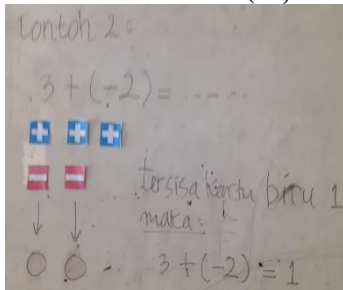 Contoh 2:
3 + (-2) = .....
+ + +
- -
tersisa kartu biru 1
maka:
0 0 .. 3 + (-2) = 1